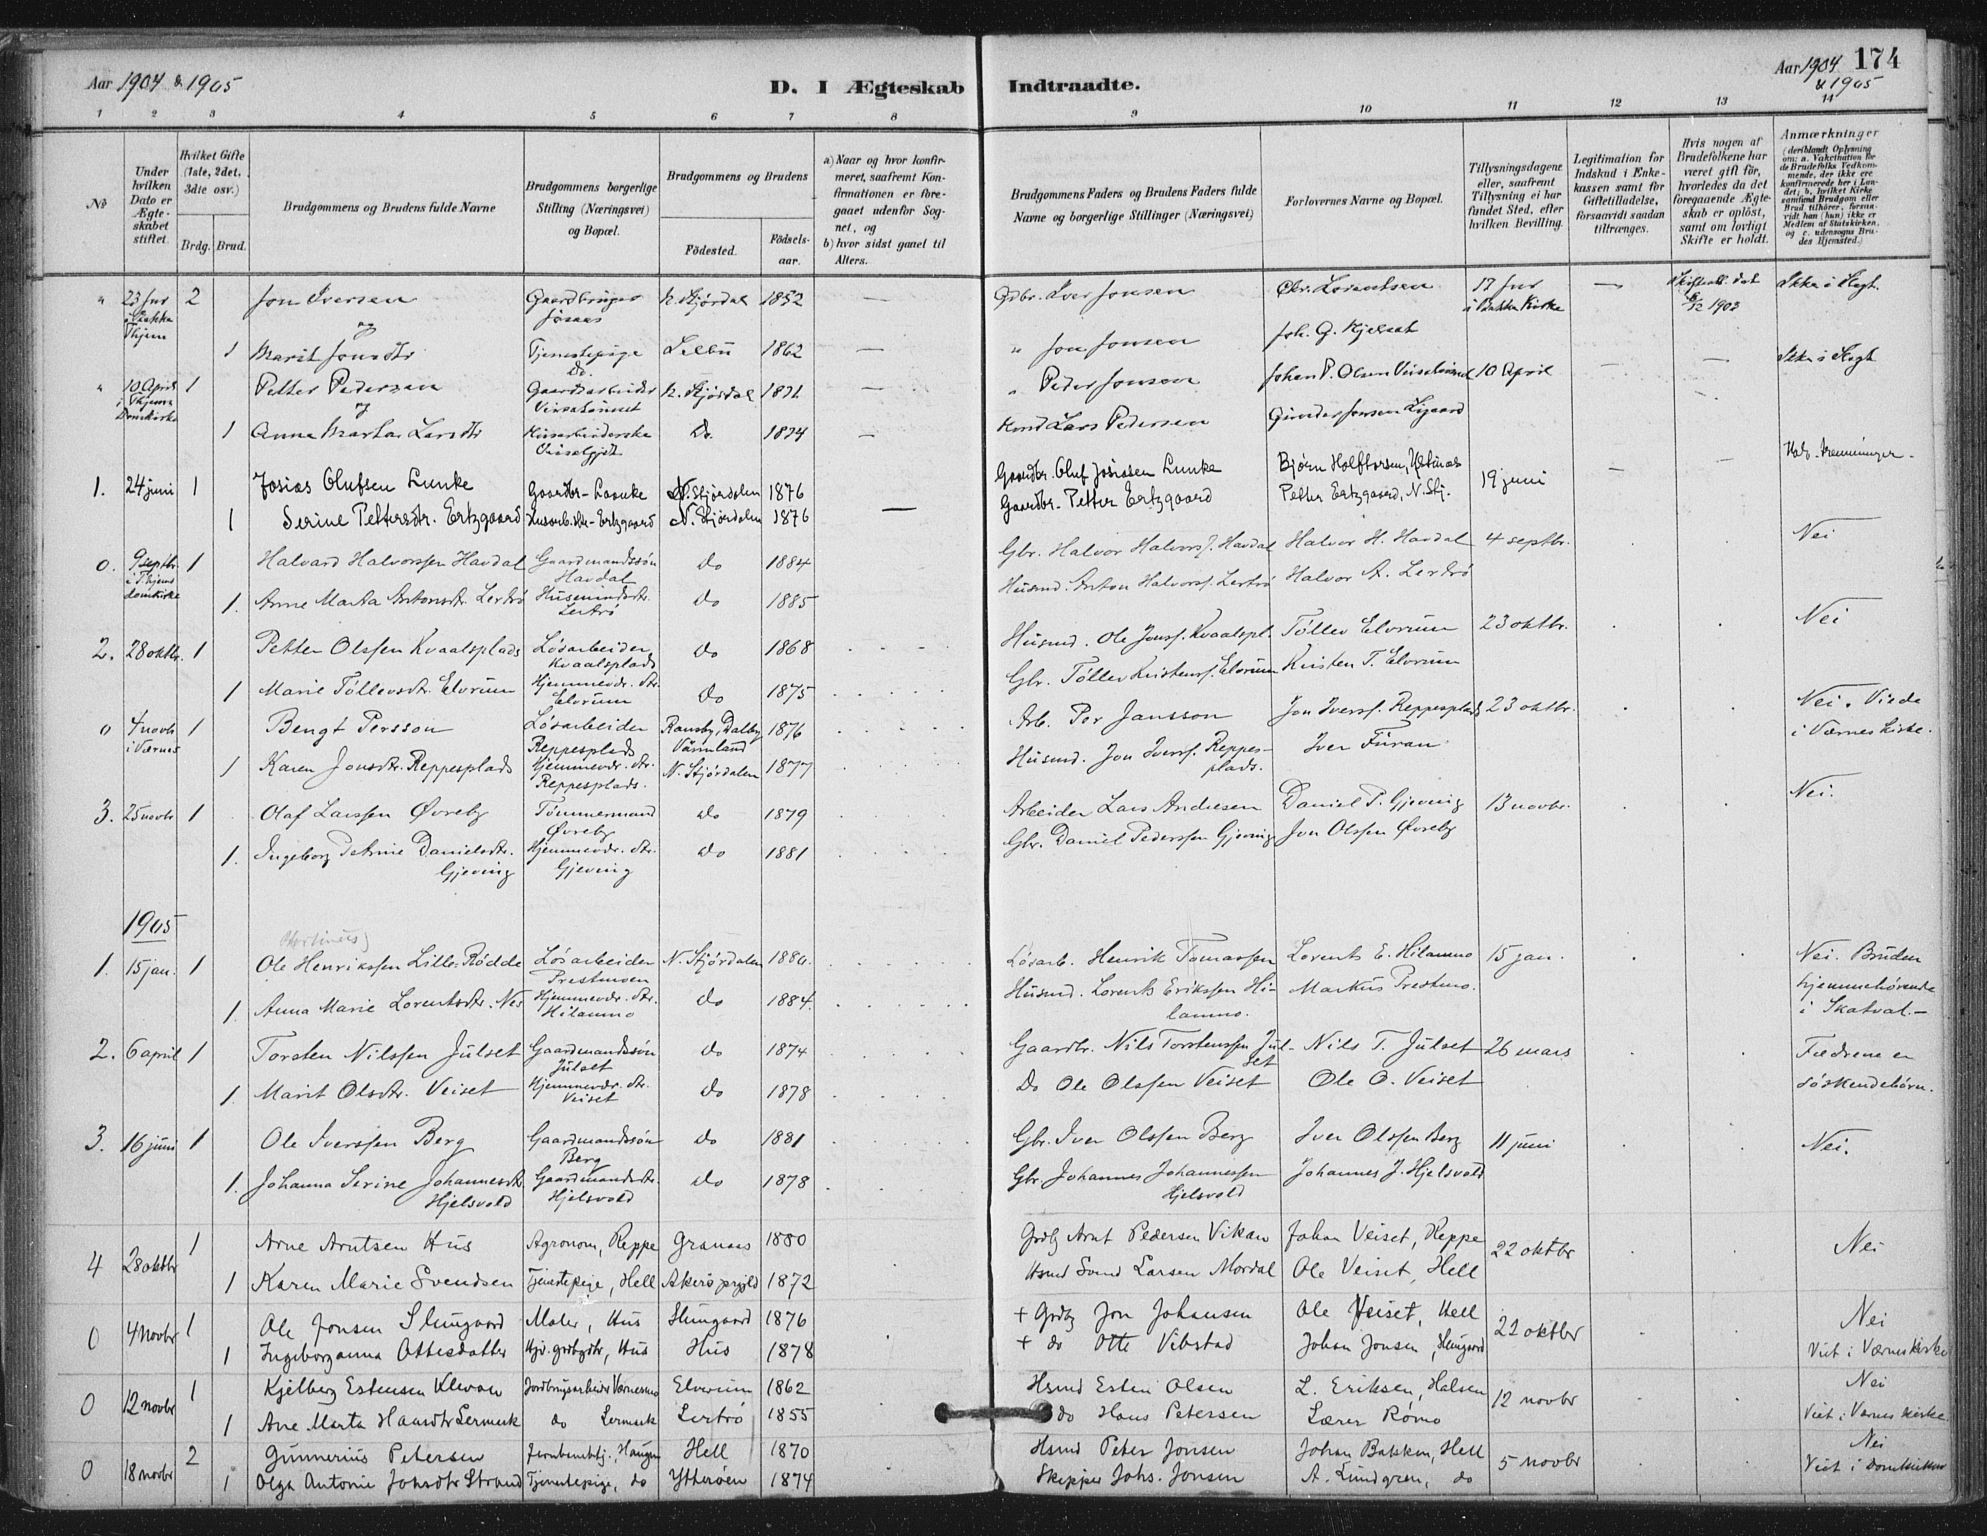 Aar 1904 & 1905
D. I Ægteskab Indtraadte.
Aar 1904 & 1905
174
1 2 3 4 5 6 7 8 9 10 11 12 13 14
No
Under hvilken Dato er Ægteskabet stiftet.
Hvilket Gifte (1ste, 2det, 3die osv.)
Brdg. Brud.
Brudgommens og Brudens fulde Navne
Brudgommens borgerlige Stilling (Næringsvei) og Bopæl.
Brudgommens og Brudens
Fødested.
Fødselsaar.
a) Naar og hvor konfirmeret, saafremt Konfirmationen er foregaaet udenfor Sognet, og
b) hvor sidst gaaet til Alters.
Brudgommens Faders og Brudens Faders fulde Navne og borgerlige Stillinger (Næringsvei)
Forlovernes Navne og Bopæl.
Tillysningsdagene eller, saafremt Tillysning ei har fundet Sted, efter hvilken Bevilling.
Legitimation for Indskud i Enkekassen samt for Giftetilladelse, forsaavidt saadan tiltrænges.
Hvis nogen af Brudefolkene har været gift før, hvorledes da det foregaaende Ægteskab er opløst, samt om lovligt Skifte er holdt.
Anmærkninger (deriblandt Oplysning om: a. Vakcination for de Brudefolks Vedkommende, der ikke ere konfirmerede her i Landet; b. hvilket Kirkesamfund Brudgom eller Brud tilhører, forsaavidt han (hun) ikke er Medlem af Statskirken, og c. udensogns Brudes Hjemsted.)
" 23 Jnr i Bakke Thjem 2 Jon Iversen Gaardbruger N. Stjørdal 1852 — Gdbr. Iver Jonsen Chr. Lorentsen 17 Jnr i Bakke Kirke — 1903 Ikke i Slegt
og
1 Marit Jonsdtr Tjenestepige Do. Selbu 1862 — " Jon Jonsen Joh. G. Hjelset
" 10 April i Thjems Domkirke 1 Petter Pedersen Gaardsarbeider N. Stjørdal 1871 " Peder Jonsen Johan P. Olsen 10 April — — Ikke i Slegt
og
1 Anna Marta Larsdtr Do. 1874 — Lars Pedersen
1. 24 juni 1 Josias Olufsen Lunke Gaardbr- Laanke N. Stjørdalen 1876 Gaardbr. Oluf Josiassen Lunke Bjørn Holftorsen, 19 juni — —
1 Serine Pettersdtr. Ertzgaard Husarb.ske- Ertzgaard N. Stjørdalen 1876 — Gaardbr- Petter Ertzgaard Petter Ertzgaard, N. Stj.
0. 9 septbr. i Thjems domkirke 1 Halvard Halvorssen Havdal Gaardmandssøn Havdal do 1884 Gbr. Halvor Halvorss. Havdal Halvor H. Havdal 4 septbr. Nei
1. Anne Marta Antonsdtr. Lertrø Husmandsdtr. Lertrø do 1885 Husmd. Anton Halvorss. Lertrø Halvor A. Lertrø
2. 28 oktbr. 1 Petter Olssen Kvaalsplads Løsarbeider Kvaalsplads do 1868 Husmd. Ole Jonss. Kvaalspl. Tøllev Elvrum 23 oktbr. Nei
1 Marie Tøllevsdtr. Elvrum Hjemmevær. dtr. Elvrum do 1875 Gbr. Tøllev Kristenss. Elvrum Kristen T. Elvrum
0 4 novb i Værnes 1 Bengt Persson Løsarbeider Reppesplads Ransby, Dalby Värmland 1876 Arb. Per Jansson Jon Iverss. Reppesplads 23 oktbr. Nei. Viede i Værnes Kirke.
1 Karen Jonsdtr. Reppesplads Hjemmevær. dtr. Reppesplads. N. Stjørdalen 1877 Husmd. Jon Iverss. Reppesplads. Iver Furan
3. 25 novbr 1 Olaf Larssen Øvreby Tømmermand Øvreby do 1879 Arbeider Lars Andresen Daniel P. Gjeving 13 novbr. Nei.
1. Ingeborg Petrine Danielsdtr. Gjeving Hjemmevær. dtr. Gjeving do 1881 Gbr. Daniel Pederssen Gjeving Jon Olssen Øvreby
1905
1. 15 jan. 1 Ole Henrikssen Lille-Rødde Løsarbeider Prestmoen N. Stjørdalen 1880. Løsarb. Henrik Tomassen Lorents E. Hilammo 15 jan. Nei. Bruden hjemmehørende i Skatval.—
1. Anna Marie Lorentsdtr. Nes Hjemmevær. dtr. Hilammo do 1884. Husmd. Lorents Erikssen Hilammo. Markus Prestmo.
2. 6 april 1 Torsten Nilssen Julset Gaardmandssøn Julset do 1874 Gaardbr. Nils Torstenssen Julset Nils T. Julset 26 mars Fædrene er søskendebørn.
1. Marit Olsdtr. Veiset Hjemmevær. dtr. Veiset do 1878 Do Ole Olssen Veiset Ole O. Veiset
3. 16 juni 1 Ole Iverssen Berg Gaardmandssøn Berg do 1881 Gbr. Iver Olssen Berg Iver Olssen Berg 11 juni Nei.
1. Johanna Serine Johannesdtr Hjelsvold Gaardmandsdtr. Hjelsvold do 1878 Gbr Johannes Johannessen Hjelsvold Johannes J. Hjelsvold
4 28 oktbr 1 Arne Arntsen Hus Agronom, Reppe Granaas 1880 Grdbg Arnt Pedersen Vikan Johan Veiset, Reppe 22 oktbr Nei
1 Karen Marie Svendsen Tjenstepige, Hell Akerø prgjld 1872 Hsmd Svend Larsen Mordal Ole Veiset, Hell
0 4 novbr 1 Ole Jonsen Slungaard Maler, Hus Slungaard 1876 + Grdbg Jon Johansen Ole Veiset, Hell 22 oktbr Nei Viet i Værnes kirke
1 Ingeborganna Ottesdatter Hjv. grdbgdtr, Hus Hus 1878 + do Otte Vibstad Johan Jonsen, Slungaard
0 12 novbr 1 Kjelberg Estensen Klevan Jordbrugsarbeider Værnesmo Elverum 1862 Hsmd Esten Olsen L. Eriksen, Halsen 12 novbr Nei Viet i Værnes kirke
1 Ane Marta Hansdtr Lermerk do Lermerk Lertrø 1855 do Hans Petersen Lærer Rømo
0 18 novbr 2 Gunnerius Petersen Jernbanebtj., Haugen Hell 1870 Hsmd Peter Jonsen Johan Bakken, Hell 5 novbr Nei Viet i Domkirken
1 Olga Antonie Johsdtr Strand Tjenestepige, do Ytterøen 1874 Skipper Johs. Jonsen A. Lundgren, do